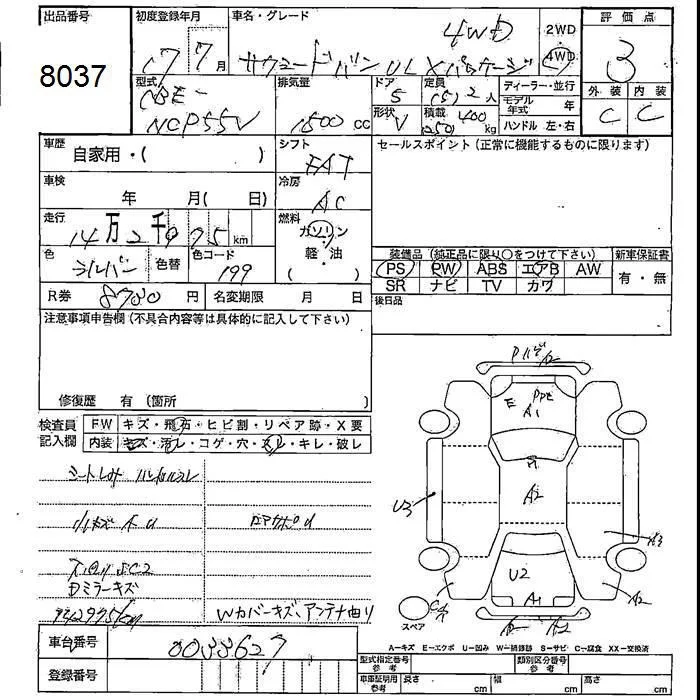 出品番号
8037
初度登録年月
17 7月
車名・グレード
4WD
サクシードバン UL Xパッケージ
2WD
4WD
評価点
3
外装 内装
C C
型式
CBE-
NCP55V
排気量
1500 cc
ドア
5
形状
V
定員
(5) 2人
積載 400
(250) kg
ディーラー・並行
モデル年式 年
ハンドル 左・右
車歴
自家用・( )
シフト
FAT
セールスポイント (正常に機能するものに限ります)
車検
年 月( 日)
冷房
AC
走行
14万2千995km
燃料
ガソリン
軽・油
( )
色
シルバー
色替
色コード
199
装備品 (純正品に限り○をつけて下さい)
新車保証書
PS PW ABS エアB AW
有・無
SR ナビ TV カワ
R券
8780円
名変期限 月 日
後日品
注意事項申告欄 (不具合内容等は具体的に記入して下さい)
修復歴 有 (箇所 )
検査員記入欄
FW キズ・飛石・ヒビ割・リペア跡・X要
内装 キズ・汚レ・コゲ・穴・スレ・キレ・破レ
シート ハンドルスレ
小キズ
Dミラーキズ
142995km
Wカバーキズ、アンテナ曲り
P
E
A1
A2
U3
A3
U2
A1
A2
スペア
A-キズ E-エクボ U-凹み W-補修跡 S-サビ C-腐食 XX-交換済
車台番号
0033627
登録番号
型式指定番号 参考
類別区分番号 参考
車庫証明用 参考
長さ cm
幅 cm
高さ cm